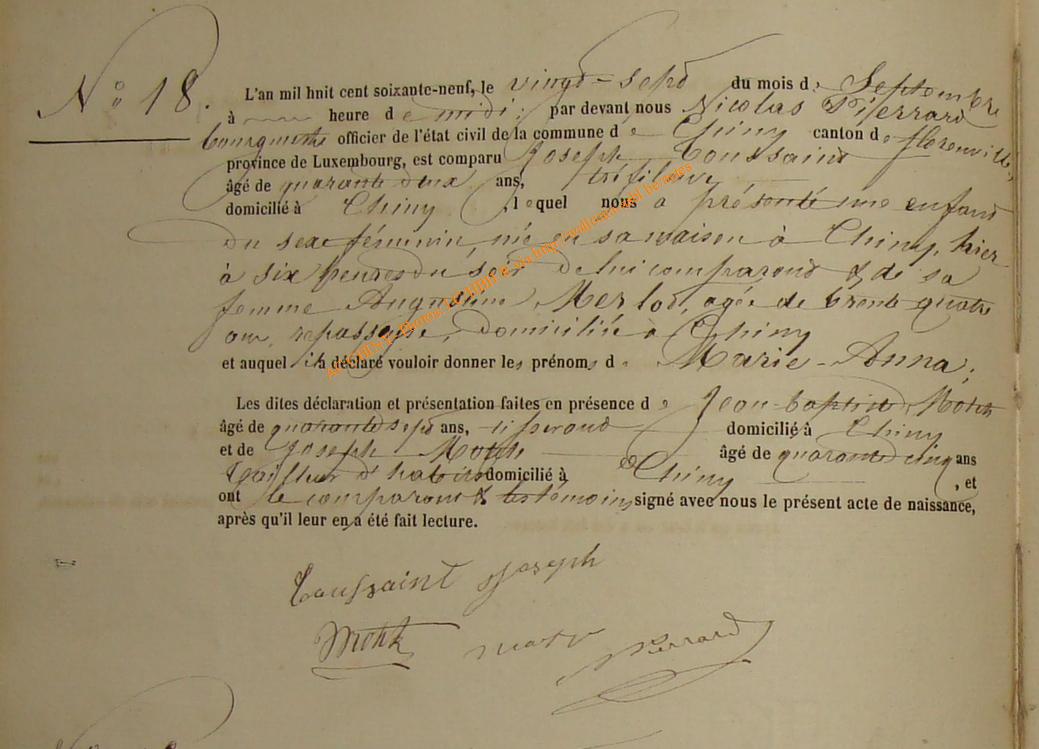 N° 18.
L'an mil huit cent soixante-neuf, le vingt-sept du mois de Septembre
à heure de midi; par devant nous Nicolas Pierrard
bourgmestre officier de l'état civil de la commune de Chiny canton de florenville,
province de Luxembourg, est comparu Joseph Toussaint
âgé de quarante deux ans, tréfileur
domicilié à Chiny, lequel nous a présenté une enfant
du sexe féminin, née en sa maison à Chiny, hier
à six heures du soir de lui comparant & de sa
femme Augustine Merlot, agée de trente quatre
ans, repasseuse, domiciliée à Chiny
et auquel il a déclaré vouloir donner les prénoms de Marie-Anna.
Les dites déclaration et présentation faites en présence de Jean-baptiste
âgé de quarante sept ans, tisserand domicilié à Chiny
et de Joseph âgé de quarante cinq ans
tailleur d'habits domicilié à Chiny, et
ont le comparant & les témoins signé avec nous le présent acte de naissance,
après qu'il leur en a été fait lecture.
Toussaint Joseph
Pierrard